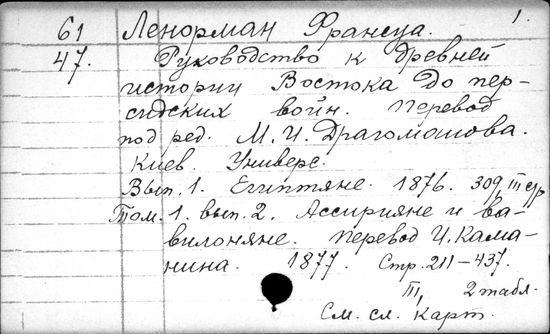 1.
61 Ленорман Франсуа.
47. Руководство к древней
истории Востока до пер-
сидских войн. Перевод
под ред. М. И. Драгоманова.
Киев. Универс.
Вып. 1. Египтяне. 1876. 309, III стр
Том. 1. вып. 2. Ассирияне и ва-
вилоняне. Перевод И. Кама-
нина. 1877. Стр. 211–437.
III, 2 табл.
См. сл. карт.